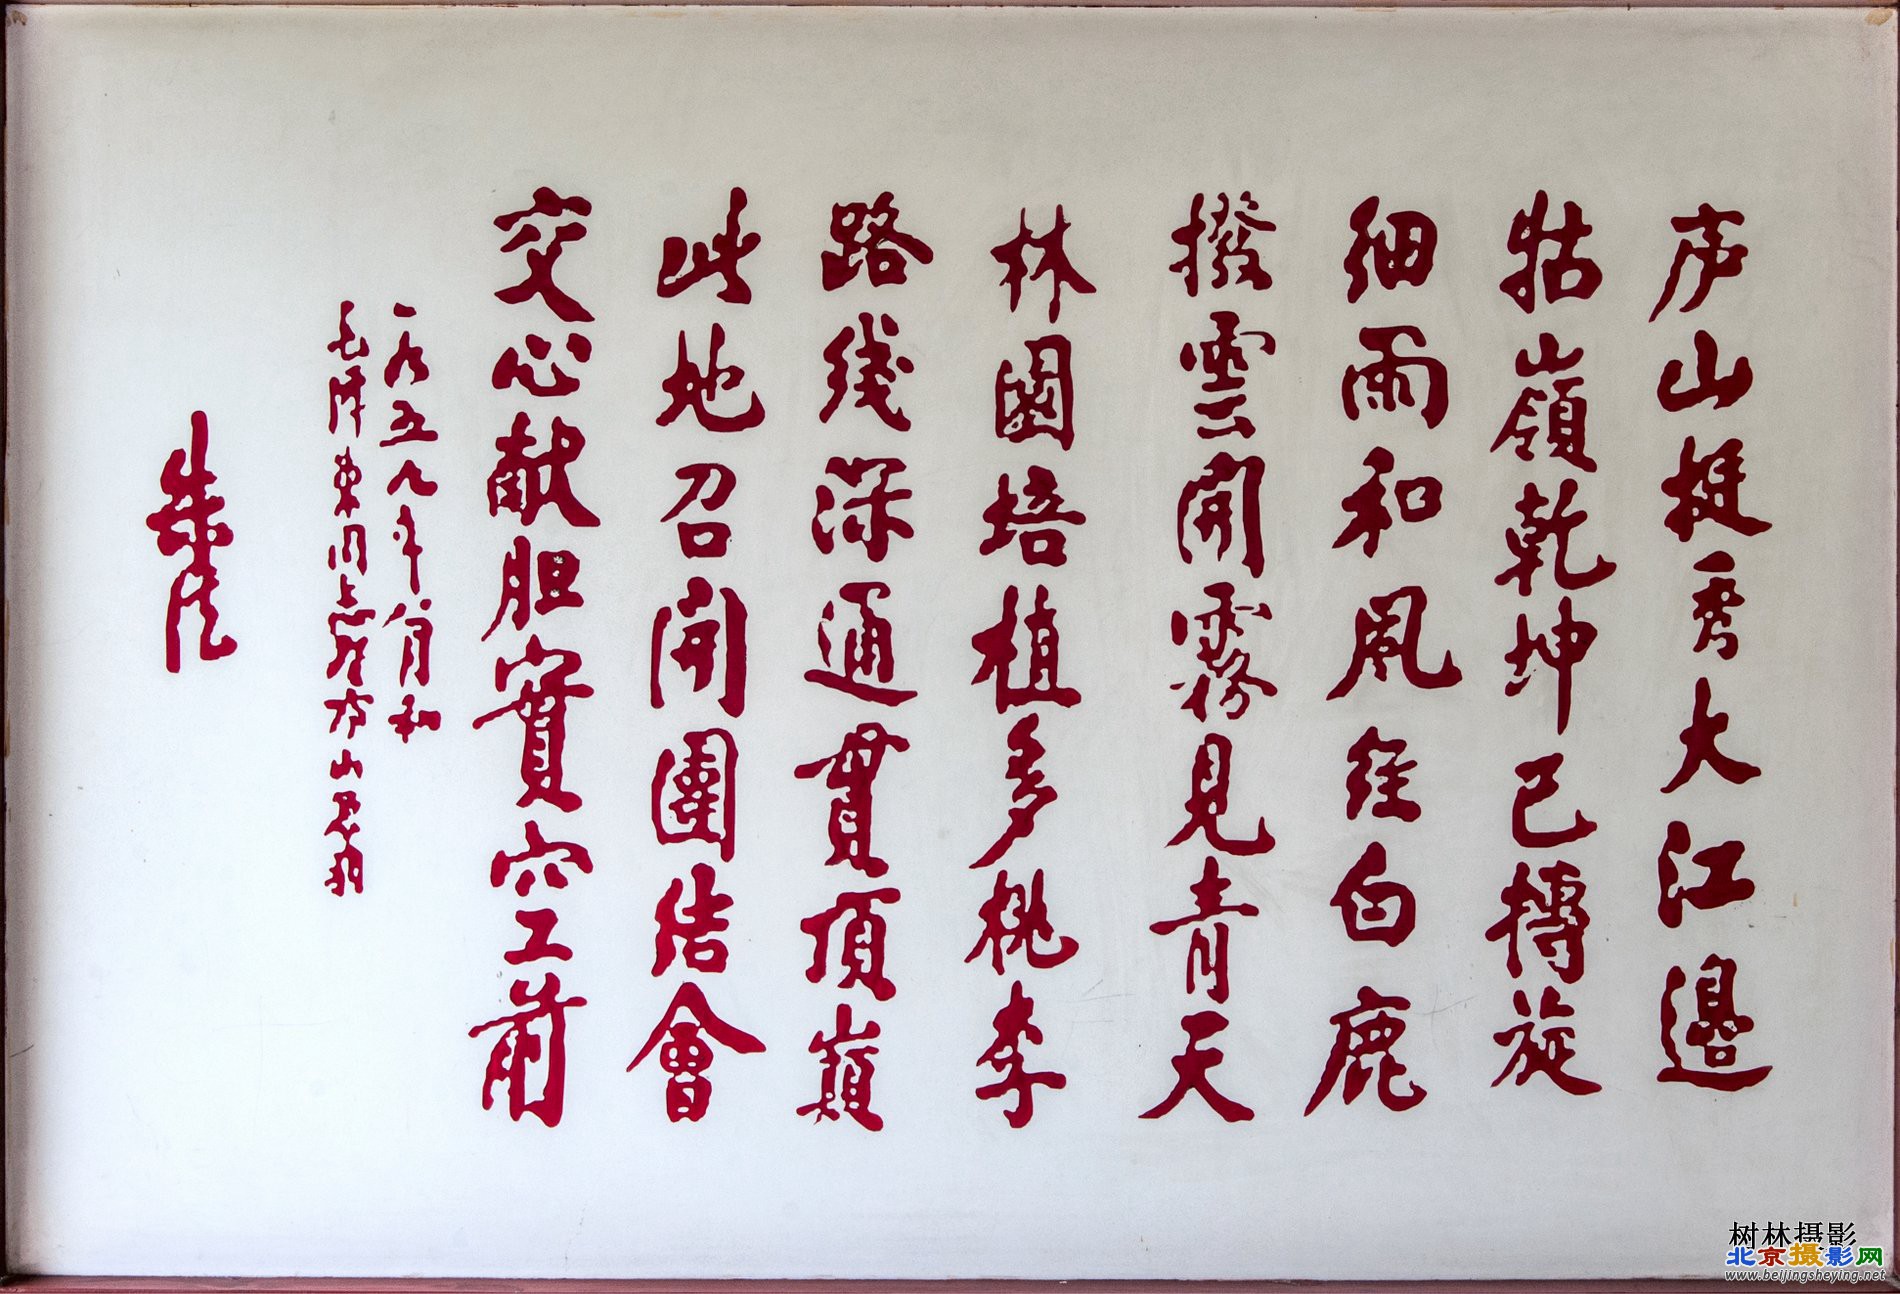 庐山挺秀大江邊
牯嶺乾坤已轉旋
细雨和風经白鹿
撥雲開霧見青天
林園培植多桃李
路线深通貫頂巔
此地召開團结會
交心献胆實空前
一九五九年八月和
毛泽東同志登庐山原韵
朱德
树林摄影
北京摄影网
www.beijingsheying.net